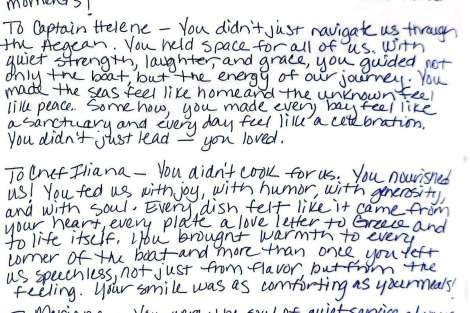 moments!
To Captain Helene – You didn't just navigate us through
the Aegean. You held space for all of us. With
quiet strength, laughter, and grace, you guided not
only the boat, but the energy of our journey. You
made the seas feel like home and the unknown feel
like peace. Somehow, you made every bay feel like
a sanctuary and every day feel like a celebration.
You didn't just lead – you loved.
To Chef Iliana – You didn't cook for us. You nourished
us! You fed us with joy, with humor, with generosity,
and with soul. Every dish felt like it came from
your heart, every plate a love letter to Greece and
to life itself. You brought warmth to every
corner of the boat and more than once you left
us speechless, not just from flavor, but from the
feeling. Your smile was as comforting as your meals!